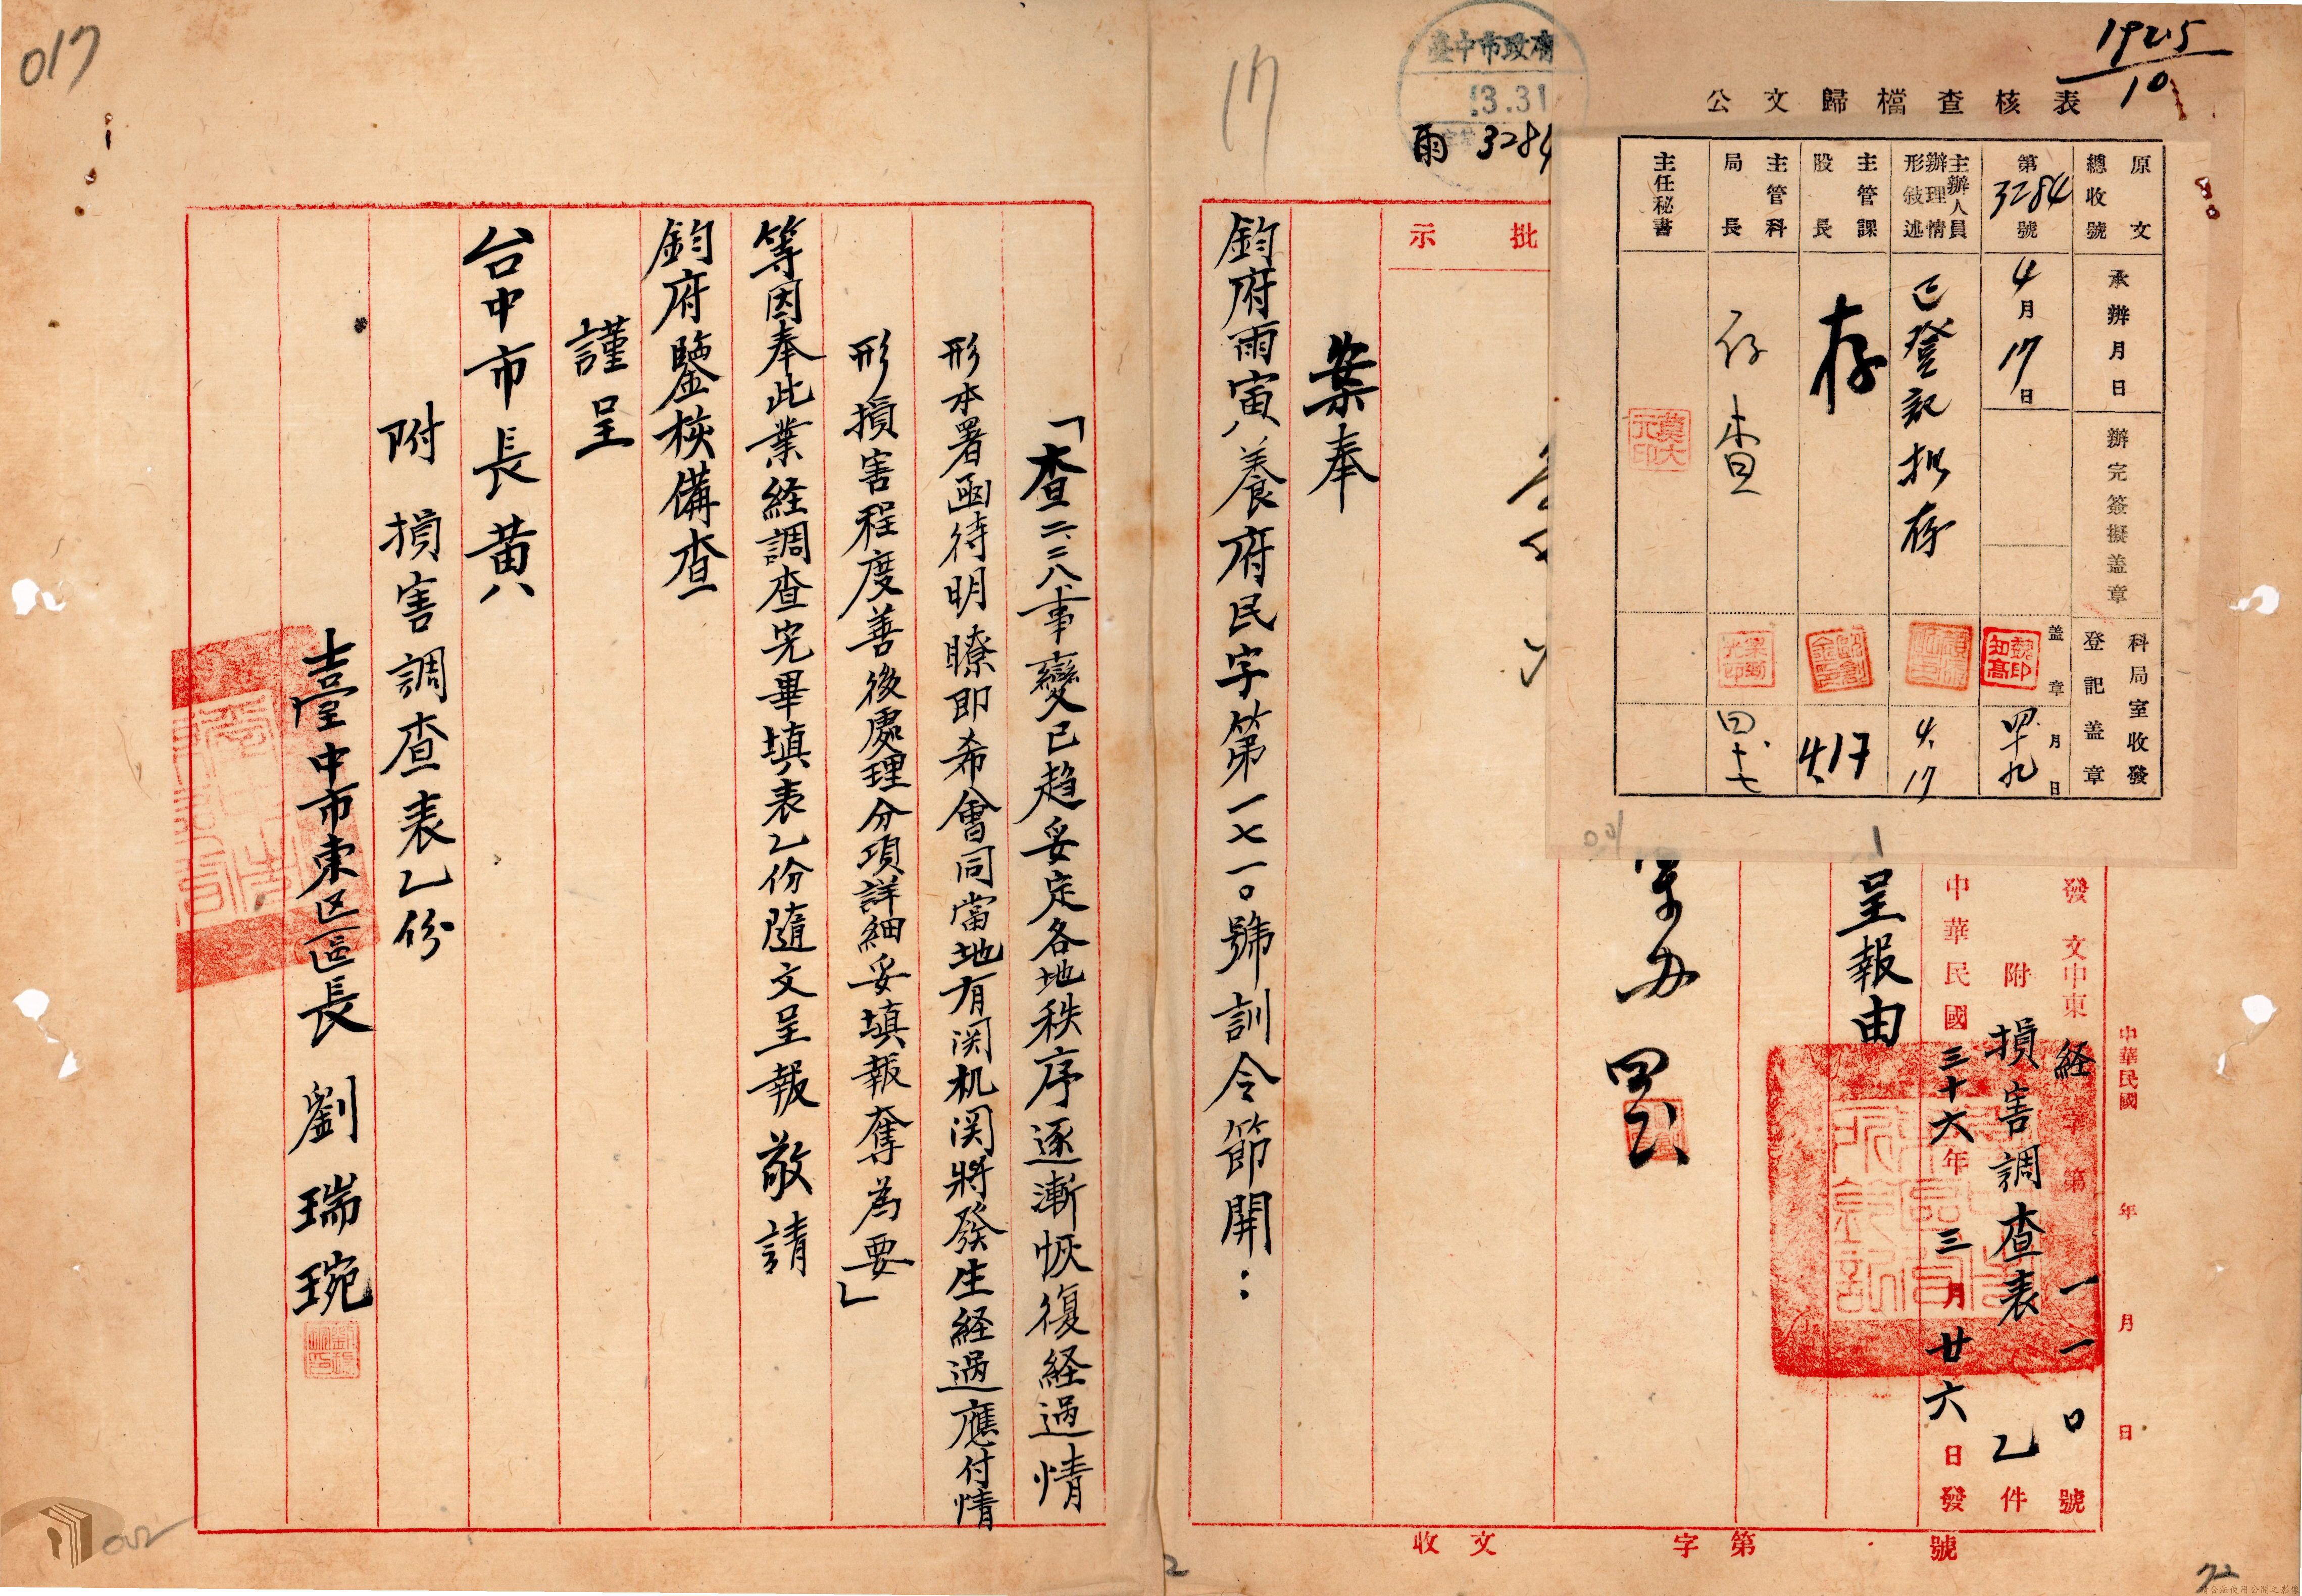 017
17
1925
10
臺中市政府
3.31
雨 3284
公文歸檔查核表
原文總收號
承辦月日
辦完簽擬盖章
科局室收發登記盖章
第3284號
4月17日
盖章
四、九
月
日
主辦人員辦理情形敍述
已登記擬存
4.17
主管課股長
存
4.17
主管科局長
存查
四、十七
主任秘書
中華民國 年 月 日
發文中東経字第一一〇號
附 損害調查表 乙件
中華民國三十六年三月廿六日發
呈報由
批示
案奉
鈞府雨寅八養府民字第一七一〇號訓令節開：
「查二、二八事變已趋妥定各地秩序逐漸恢復経過情
形本署亟待明瞭即希會同當地有関机関將發生経過應付情
形損害程度善後處理分項詳細妥填報奪為要」
等因奉此業経調查完畢填表乙份隨文呈報敬請
鈞府鑒核備查
謹呈
台中市長黄八
附 損害調查表乙份
臺中市東区區長 劉瑞琬
收文 字第 號
002
2
72